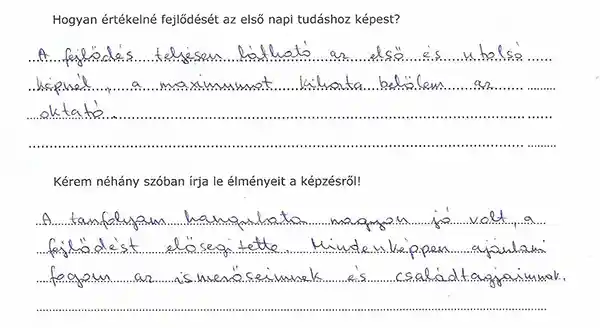 Hogyan értékelné fejlődését az első napi tudáshoz képest?
A fejlődés teljesen látható az első és utolsó
képnél, a maximumot kihozta belőlem az
oktató.
Kérem néhány szóban írja le élményeit a képzésről!
A tanfolyam hangulata nagyon jó volt, a
fejlődést elősegítette. Mindenképpen ajánlani
fogom az ismerőseimnek és családtagjaimnak.